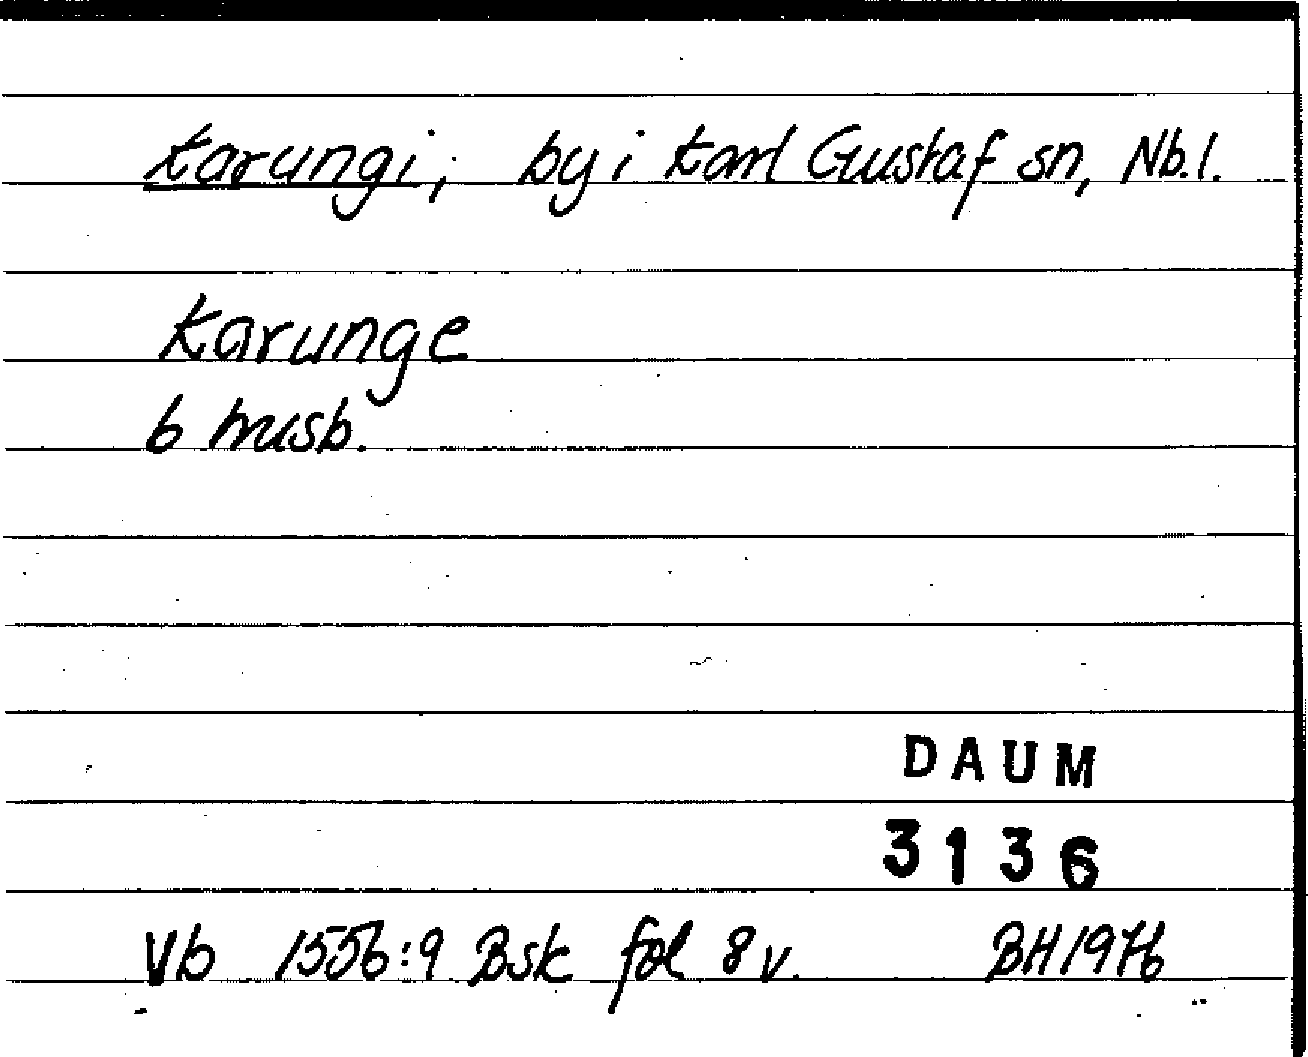 Karungi, by i Karl Gustaf sn, Nb.l.
Karunge
6 husb.
DAUM
3136
Vb 1556:9 Bsk fol 8 v. BH 1976